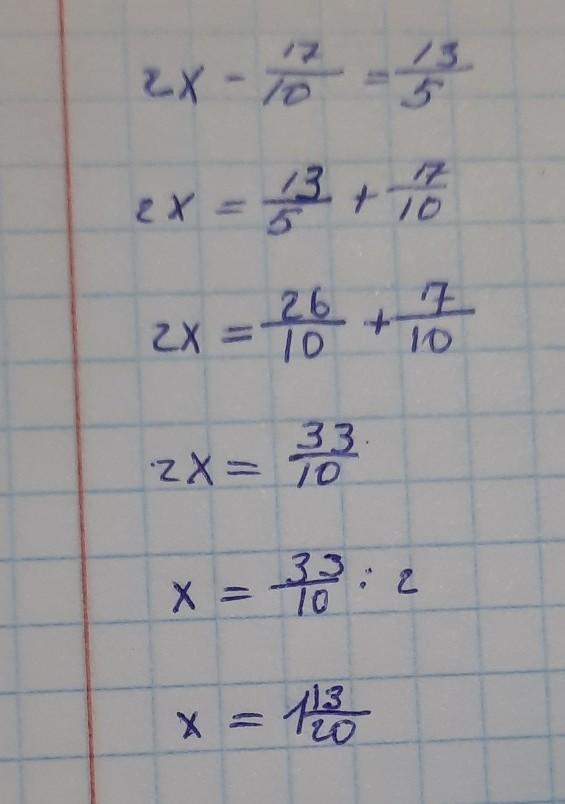 2x - 17/10 = 13/5
2x = 13/5 + 17/10
2x = 26/10 + 7/10
2x = 33/10
x = 33/10 : 2
x = 1 13/20